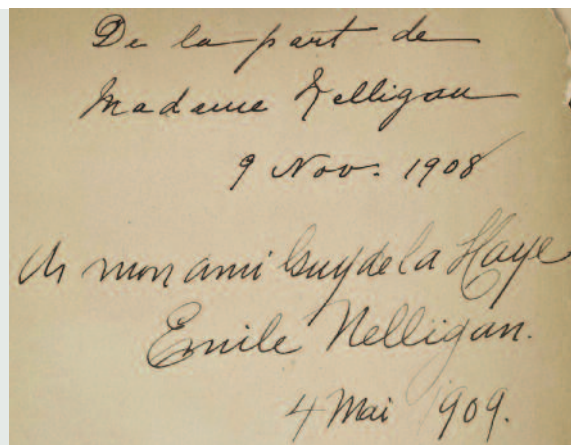 De la part de
Madame Nelligan
9 Nov. 1908
A mon ami Guy de la Haye
Emile Nelligan.
4 Mai 1909.